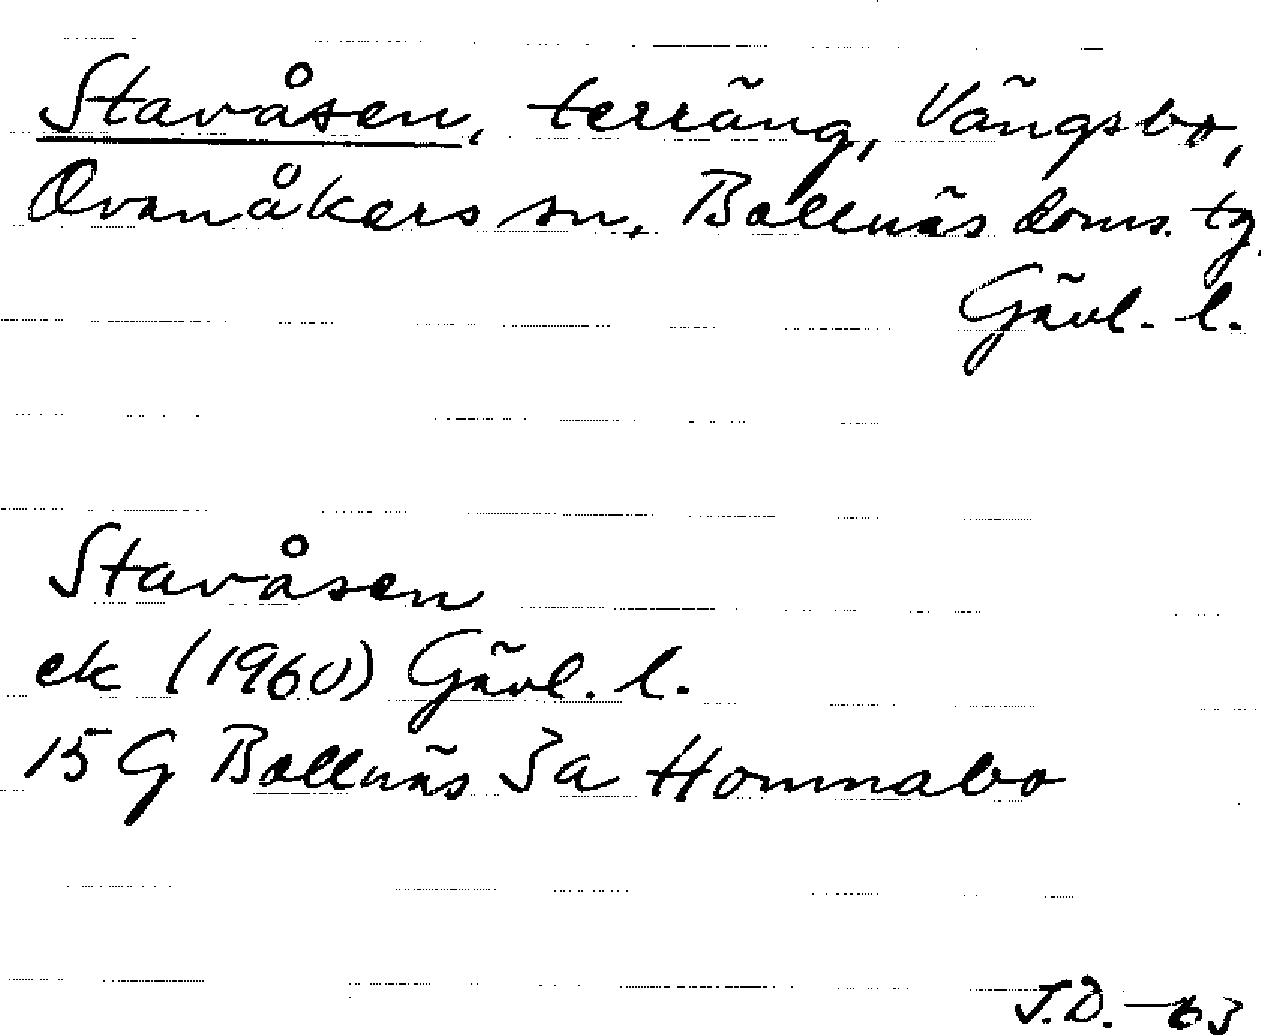 Stavåsen, terräng, Vängsbo,
Ovanåkers sn, Bollnäs doms. tg.
Gävl. l.
Stavåsen
ek (1960) Gävl. l.
15 G Bollnäs 3a Homnabo
J.D. -63